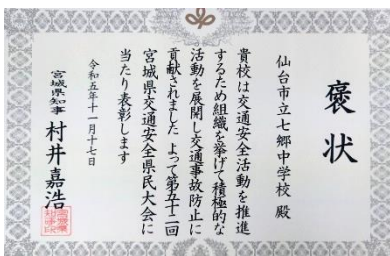 褒状
仙台市立七郷中学校 殿
貴校は交通安全活動を推進
するため組織を挙げて積極的な
活動を展開し交通事故防止に
貢献されました よって第五十二回
宮城県交通安全県民大会に
当たり表彰します
令和五年十一月十七日
宮城県知事 村井嘉浩